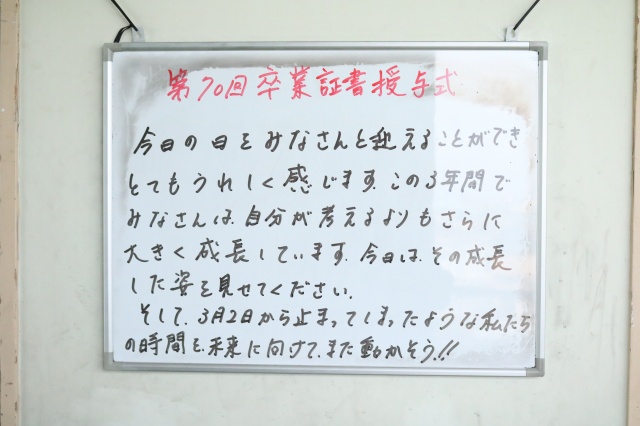 第70回卒業証書授与式
今日の日をみなさんと迎えることができ
とてもうれしく感じます。この3年間で
みなさんは、自分が考えるよりもさらに
大きく成長しています。今日は、その成長
した姿を見せてください。
そして、3月2日から止まってしまったような私たち
の時間を、未来に向けて、また動かそう!!